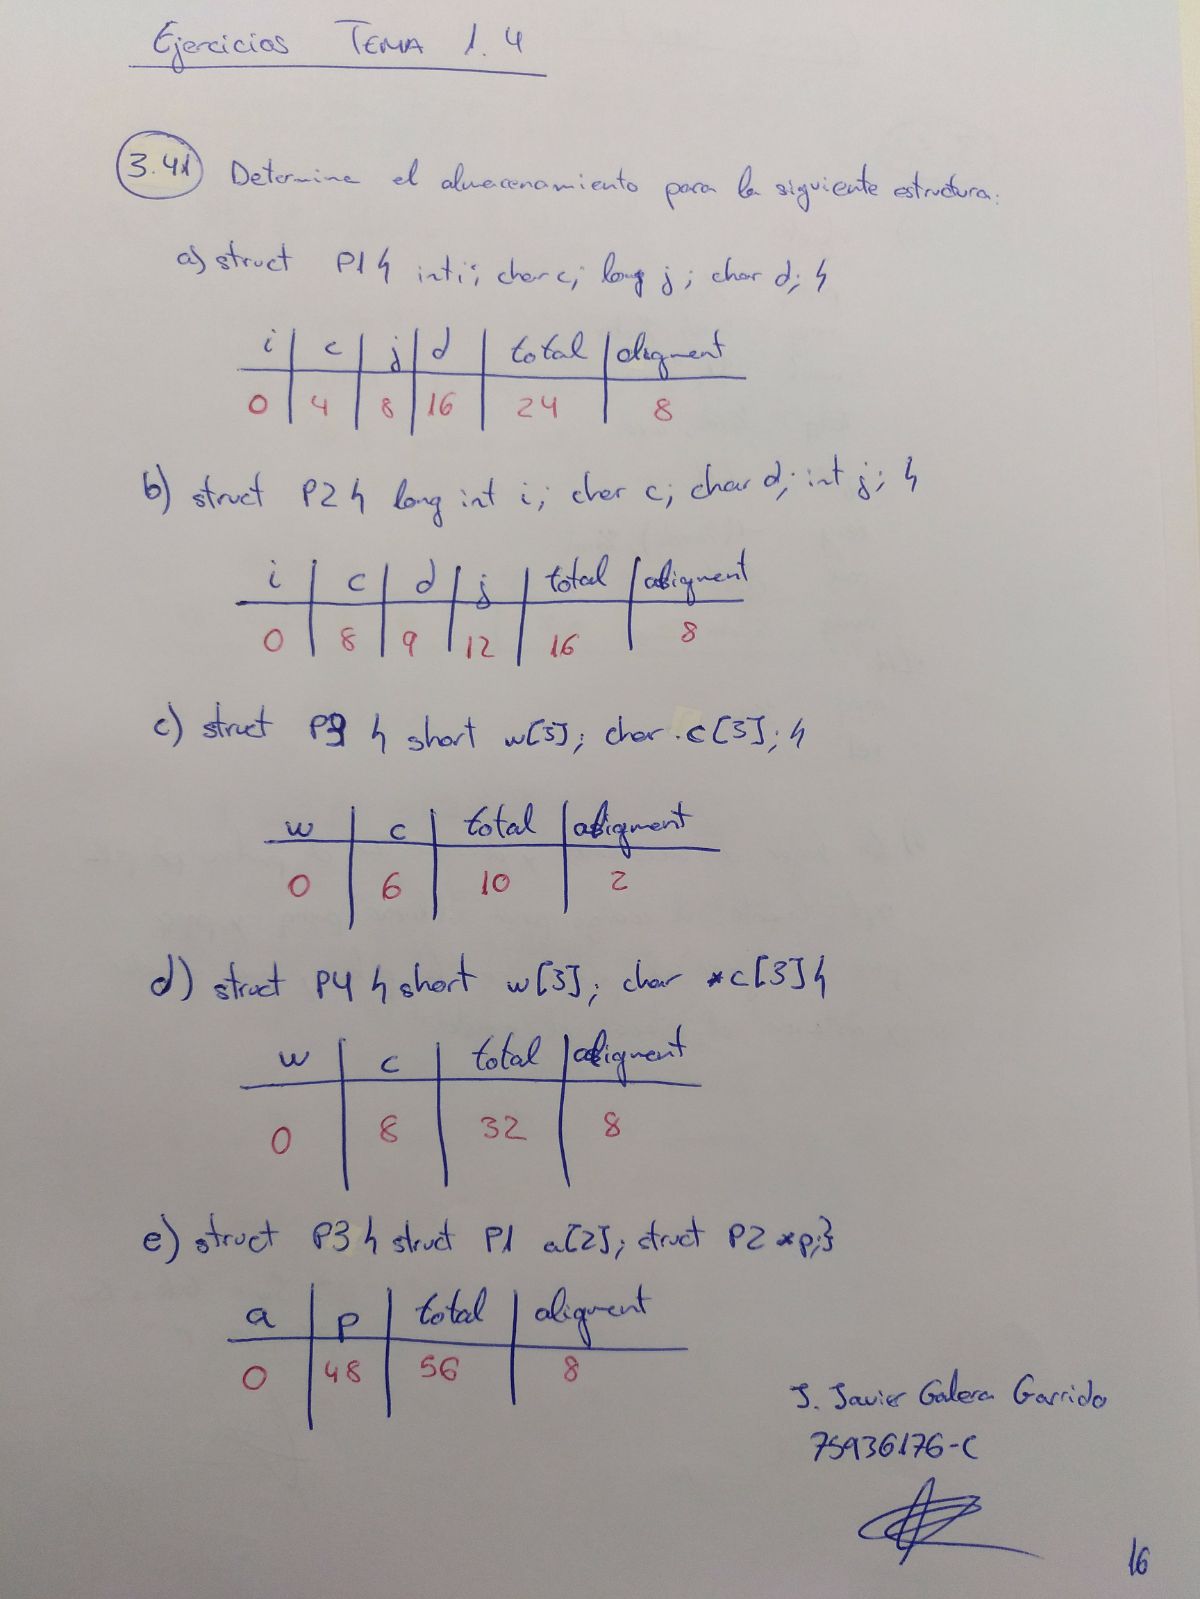 Ejercicios TEMA 1.4
3.41 Determine el almacenamiento para la siguiente estructura:
a) struct P1 { int i; char c; long j; char d; }
i c j d total aligment
0 4 8 16 24 8
b) struct P2 { long int i; char c; char d; int j; }
i c d j total aligment
0 8 9 12 16 8
c) struct P3 { short w[3]; char c[3]; }
w c total aligment
0 6 10 2
d) struct P4 { short w[3]; char *c[3] }
w c total aligment
0 8 32 8
e) struct P3 { struct P1 a[2]; struct P2 *p; }
a p total aligment
0 48 56 8
J. Javier Galera Garrido
75936176-C
16